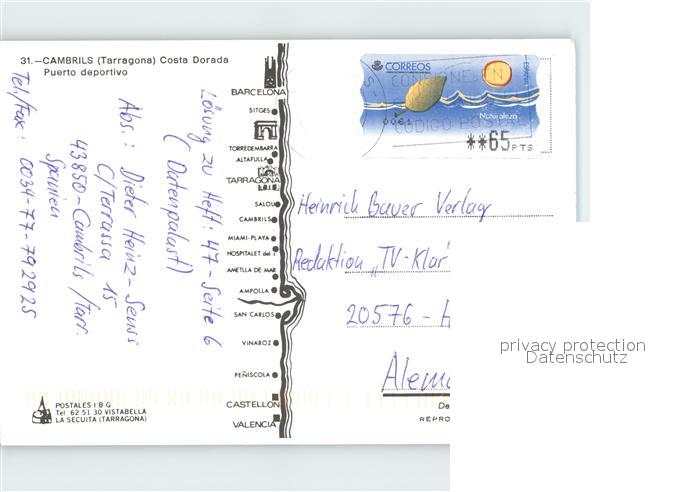 31.–CAMBRILS (Tarragona) Costa Dorada
Puerto deportivo
Lösung zu Heft: 47 – Seite 6
( Datenpalast)
Abs.: Dieter Heinz – Seuss
C/Terrassa 15
43850 – Cambrils /Tarr.
Spanien
Tel/Fax: 0034-77-792925
BARCELONA
SITGES
TORREDEMBARRA
ALTAFULLA
TARRAGONA
SALOU
CAMBRILS
MIAMI-PLAYA
HOSPITALET del I.
AMETLLA DE MAR
AMPOLLA
SAN CARLOS
VINAROZ
PEÑISCOLA
CASTELLON
VALENCIA
CORREOS
ESPAÑA
CONSIGNE EN
Naturaleza
CODIGO POSTAL
**65 PTS
Heinrich Bauer Verlag
Redaktion „TV-Klar"
20576 – H
Alema
POSTALES I B G
Tel 62 51 30 VISTABELLA
LA SECUITA (TARRAGONA)
De
REPRO
privacy protection
Datenschutz